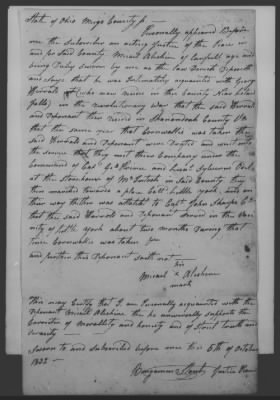 State of Ohio Meigs County ss
Personally appeared Before
me the subscriber an acting Justice of the Peace in
and for said County Micael Aleshire of lawful age and
being Duly sworn by me as the law Directs Deposeth
and says that he was Intimately acquainted with George
Harrold (who now resides in the County
) in the revolutionary war that the said Harrold
and Deponant then resided in Shanandoah County Va
that the same year that Cornwallis was taken the
said Harrold and Deponant were Drafted and went into
the service and they met their Company under the
Command of Capt Prince and Lieut
at the Storehouse of in said County they
then marched towards a place Calld little york, and on
their way thither was attatcht to Capt John Sharps Co
that the said Harrold and Deponant served in the
of little york about two months During that
time Cornwallis was taken
and further this Deponant saith not
his
Micael x Aleshire
mark
This may Certify that I am Personally acquainted with the
Deponant Micael Aleshire that he universally supports the
Carrecter of Morallity and honesty and of Strict truth and
veracity
Sworn to and subscribed before me this 6th of October
1832
Benjamin Justice Peace